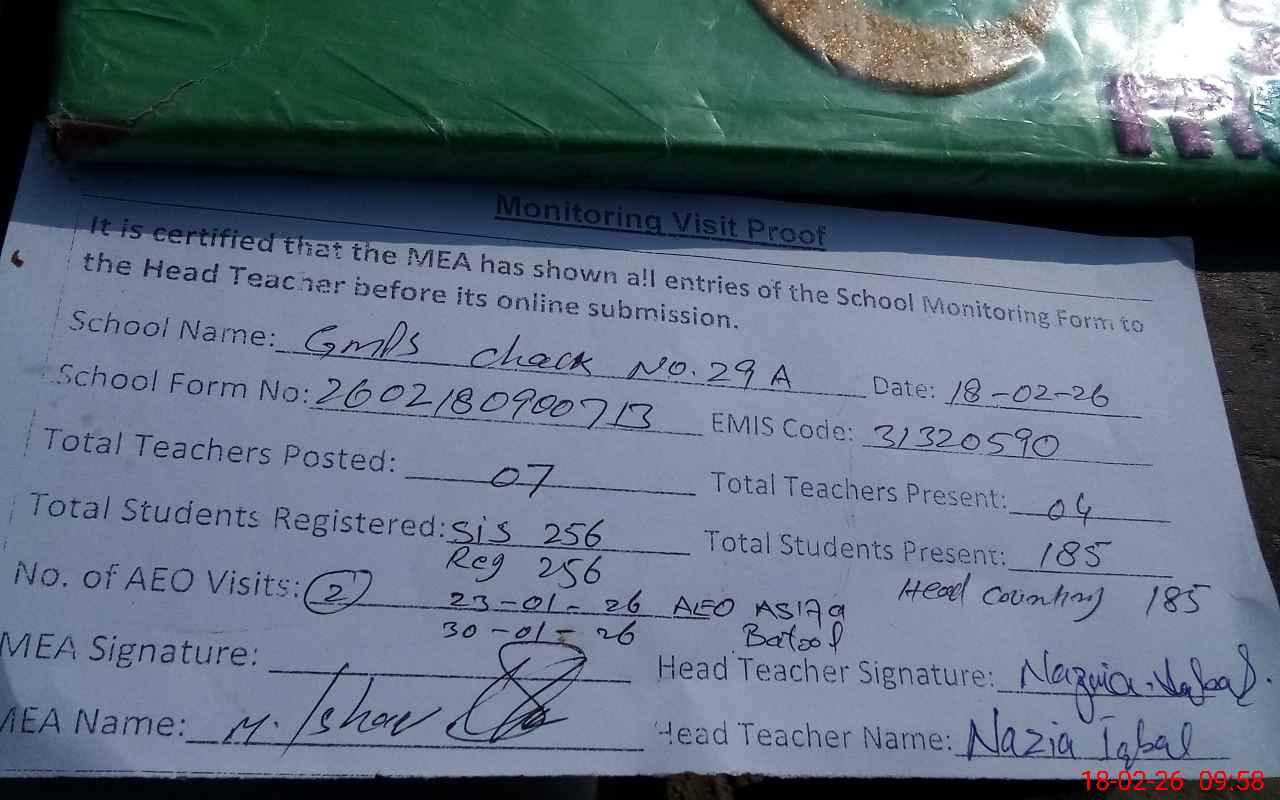 Monitoring Visit Proof
It is certified that the MEA has shown all entries of the School Monitoring Form to
the Head Teacher before its online submission.
School Name: GMPS Chack No. 29 A Date: 18-02-26
School Form No: 2602180900713 EMIS Code: 31320590
Total Teachers Posted: 07 Total Teachers Present: 04
Total Students Registered: SiS 256 Total Students Present: 185
Reg 256 Head Counting 185
No. of AEO Visits: 2 23-01-26 AEO Asifa
30-01-26 Batool
MEA Signature: Head Teacher Signature: Nazia Iqbal.
MEA Name: M. Head Teacher Name: Nazia Iqbal
18-02-26 09:58